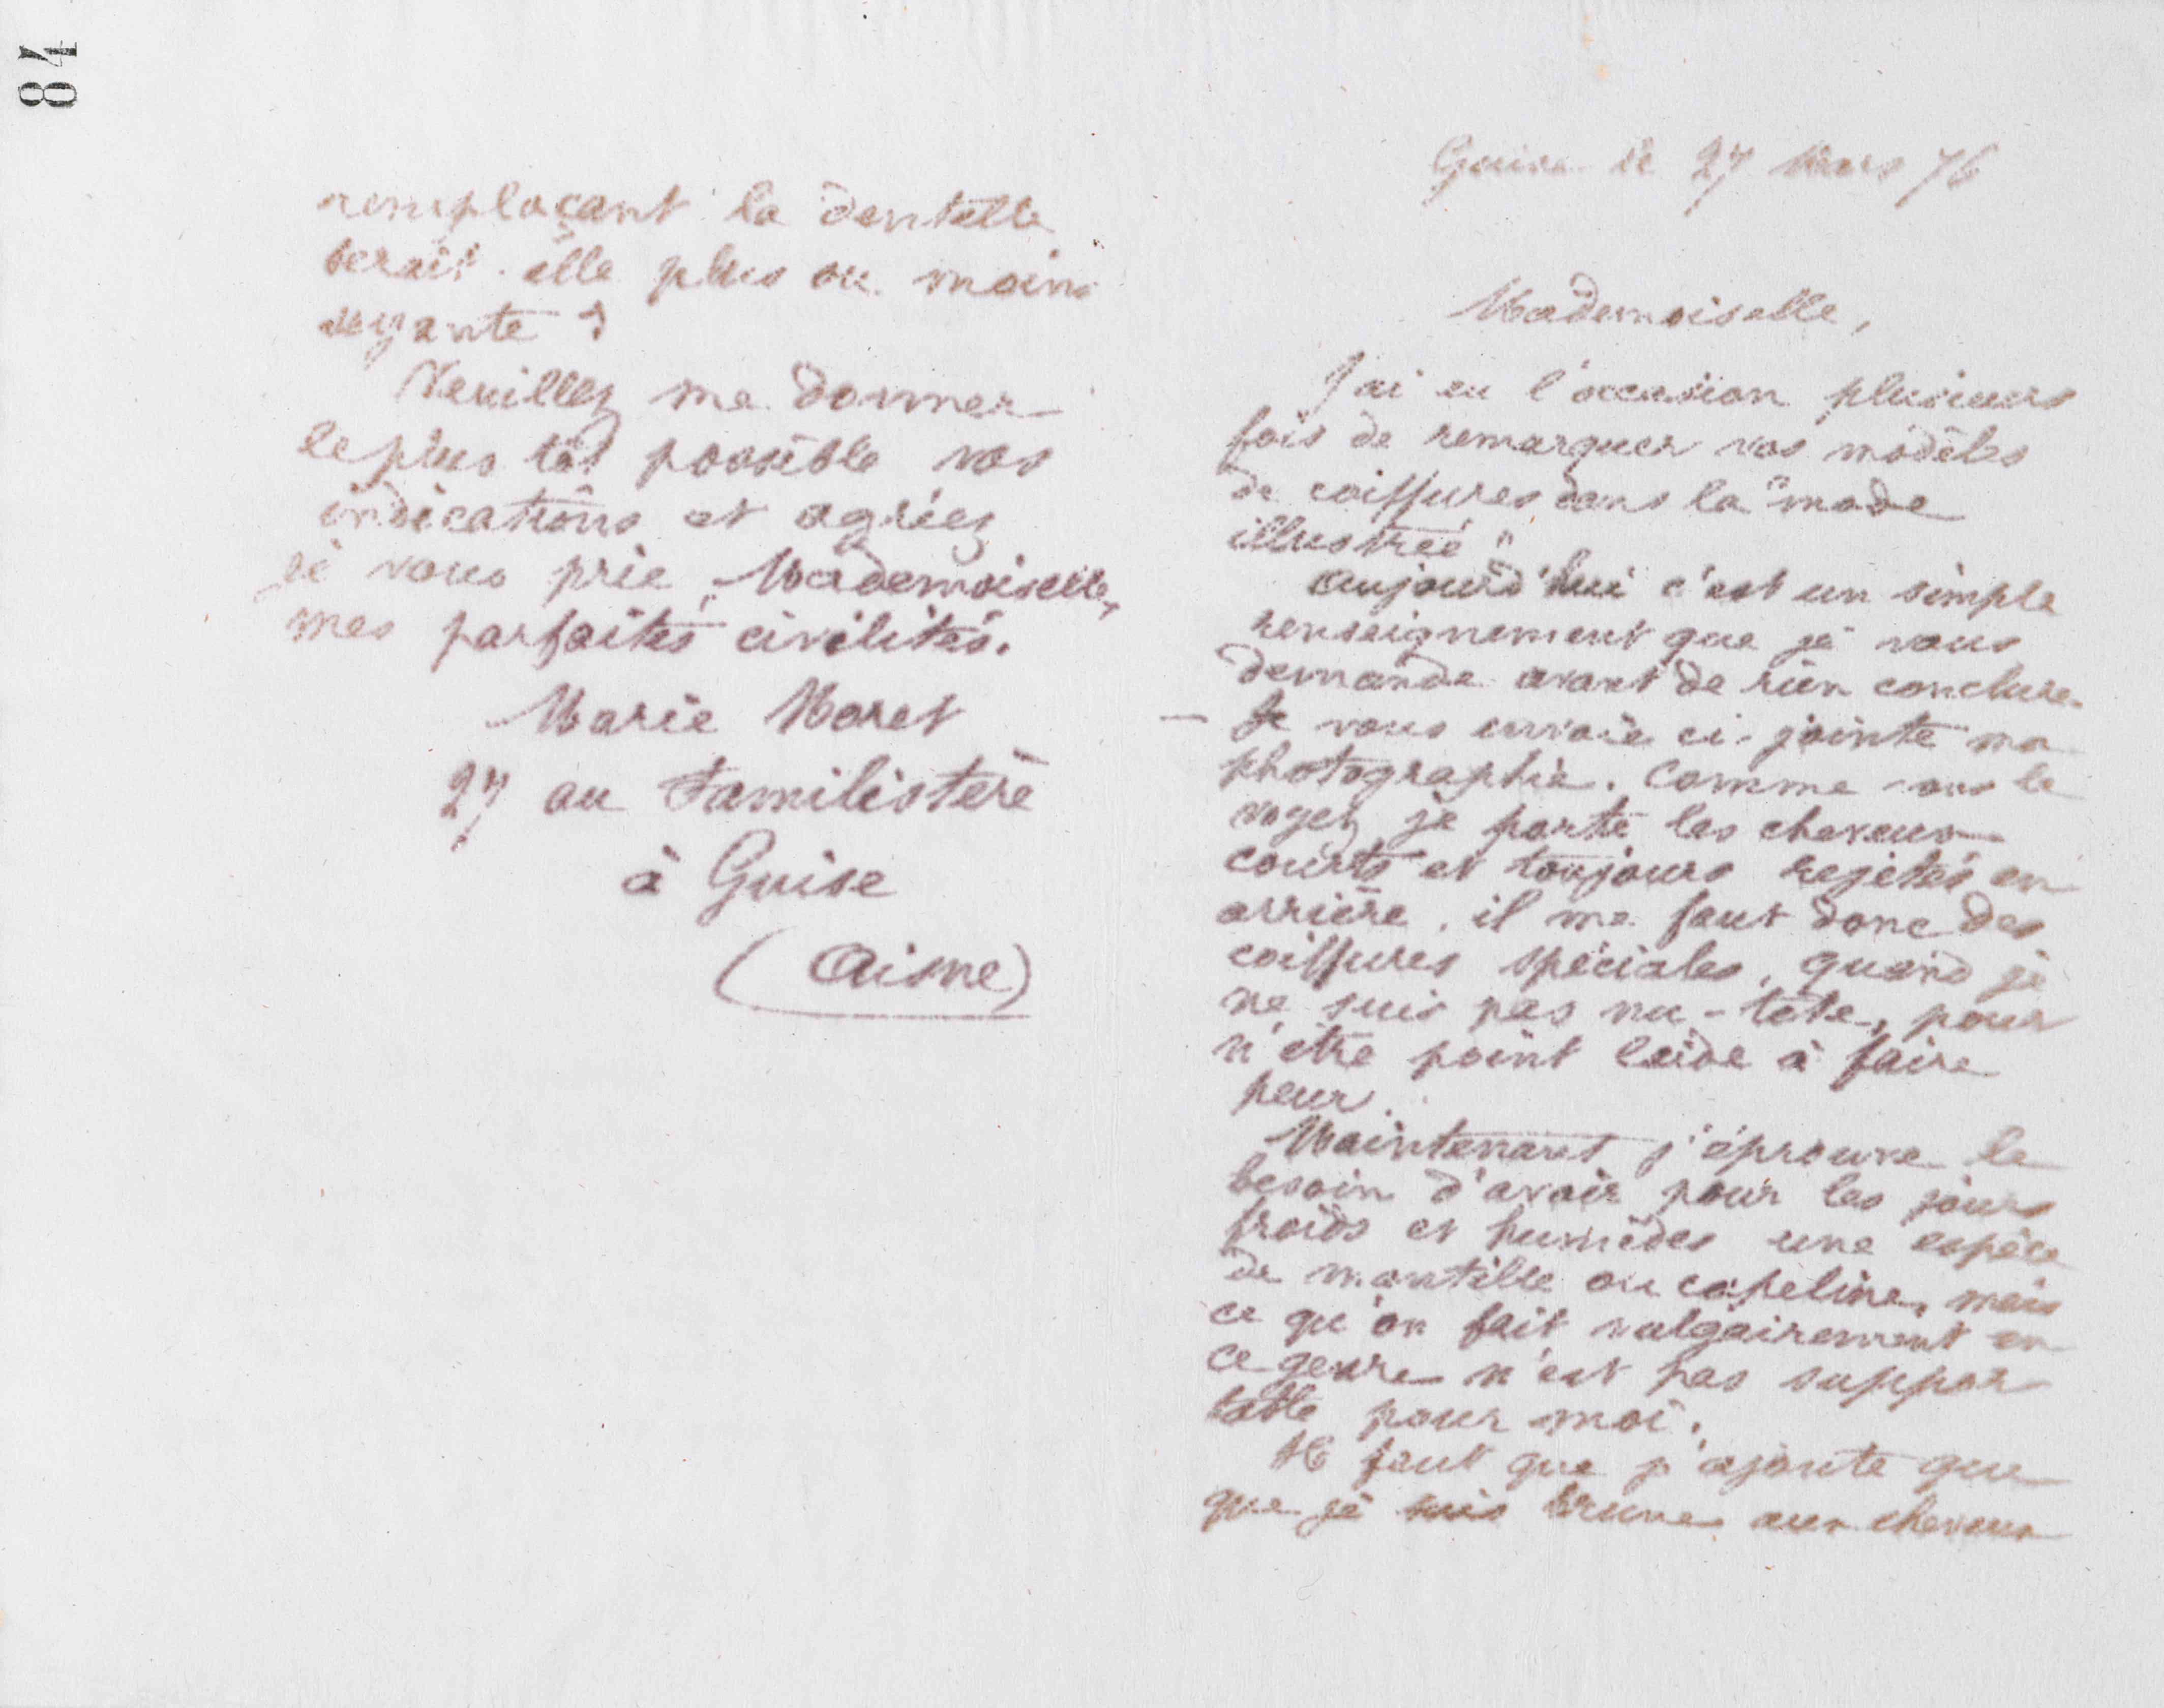 84
remplaçant la dentelle
serait-elle plus ou moins
seyante ?
Veuillez me donner
le plus tôt possible vos
indications et agréez
je vous prie, Mademoiselle,
mes parfaites civilités.
Marie Moret
27 au Familistère
à Guise
(Aisne)
Guise le 27 Mars 76
Mademoiselle,
J'ai eu l'occasion plusieurs
fois de remarquer vos modèles
de coiffures dans la "mode
illustrée"
Aujourd'hui c'est un simple
renseignement que je vous
demande avant de rien conclure.
— Je vous envoie ci-jointe ma
photographie. Comme vous le
voyez je porte les cheveux
courts et toujours rejetés en
arrière, il me faut donc des
coiffures spéciales, quand je
ne suis pas nu-tête, pour
n'être point laide à faire
peur.
Maintenant j'éprouve le
besoin d'avoir pour les jours
froids et humides une espèce
de mantille ou capeline, mais
ce qu'on fait vulgairement en
ce genre n'est pas suppor
table pour moi.
Il faut que j'ajoute que
que je suis brune aux cheveux